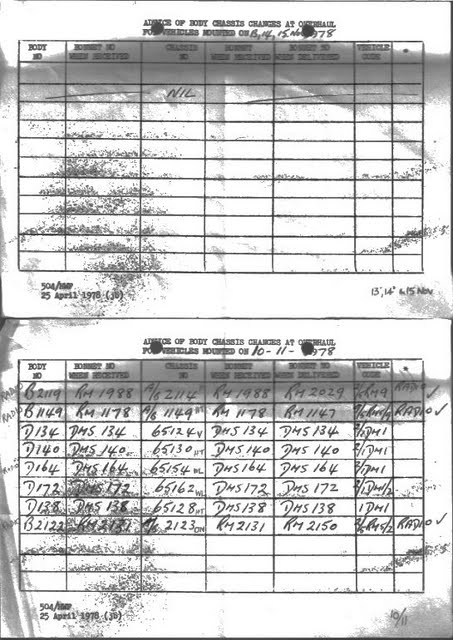 ADVICE OF BODY CHASSIS CHANGES AT OVERHAUL
FOR VEHICLES MOUNTED ON 13,14,15 Nov 1978
BODY NO BONNET NO WHEN RECEIVED CHASSIS NO BONNET NO WHEN RECEIVED BONNET NO WHEN DELIVERED VEHICLE CODE
NIL
504/HWP
25 April 1978 (jb)
13, 14 & 15 Nov
ADVICE OF BODY CHASSIS CHANGES AT OVERHAUL
FOR VEHICLES MOUNTED ON 10-11-1978
BODY NO BONNET NO WHEN RECEIVED CHASSIS NO BONNET NO WHEN RECEIVED BONNET NO WHEN DELIVERED VEHICLE CODE
RADIO B2119 RM 1988 2114 RM 1988 RM 2029 RADIO ✓
RADIO B1149 RM 1178 1149 RM 1178 RM 1147 RADIO ✓
D134 DMS 134 65124 DMS 134 DMS 134
D140 DMS 140 65130 DMS 140 DMS 140
D164 DMS 164 65154 DMS 164 DMS 164
D172 DMS 172 65162 DMS 172 DMS 172
D138 DMS 138 65128 DMS 138 DMS 138 1DM1
B2122 RM 2131 2123 RM 2131 RM 2150 RADIO ✓
504/HWP
25 April 1978 (jb)
10/11